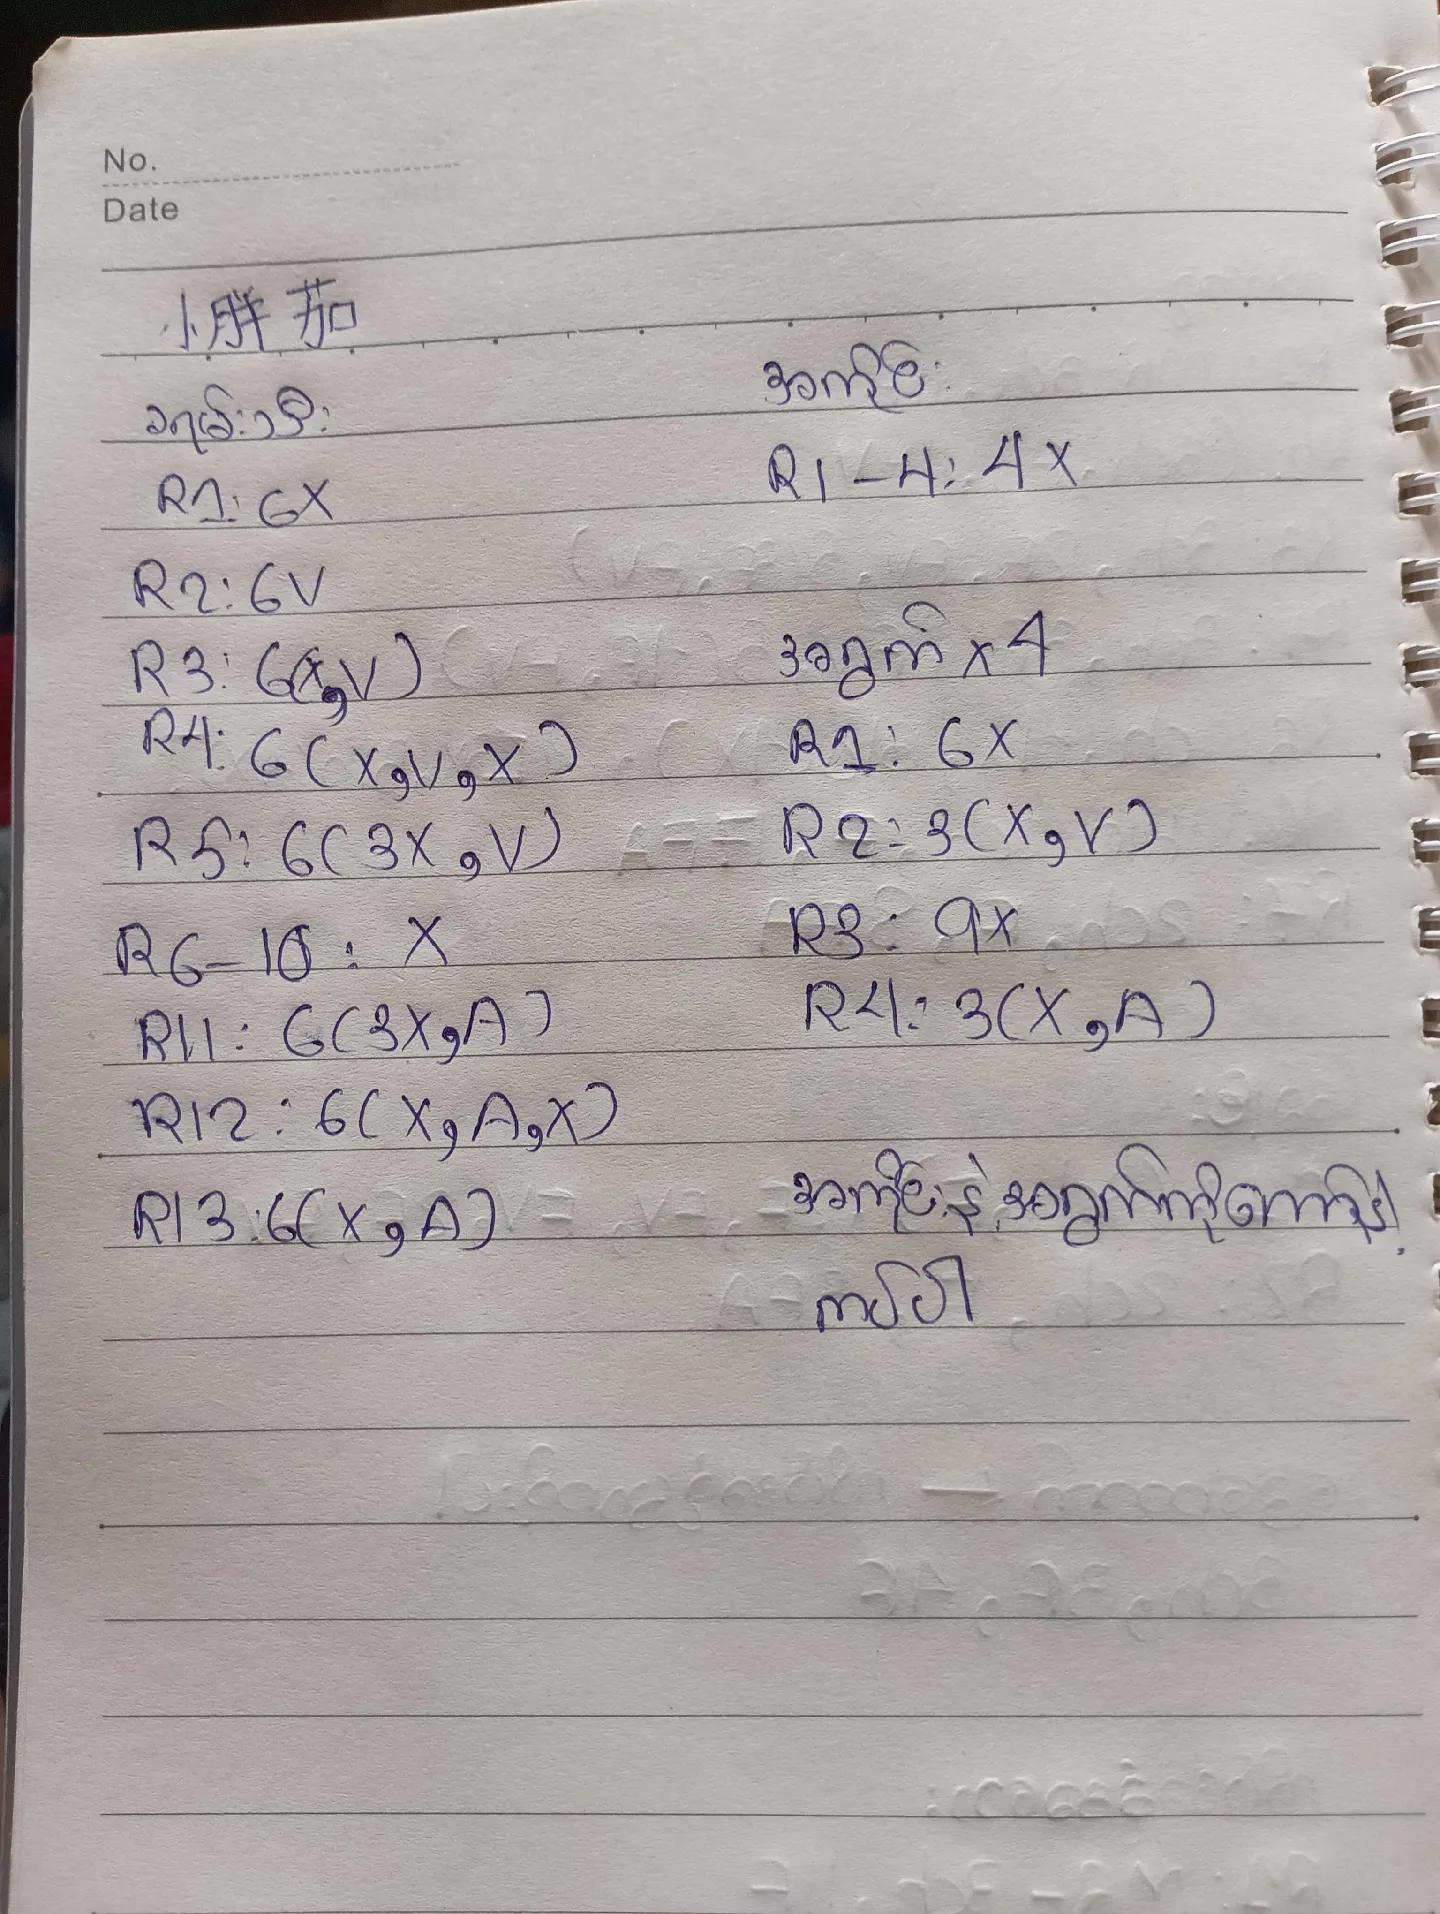 No.
Date
小胖茄
ခရမ်းသီး
R1: 6X
R2: 6V
R3: 6(X,V)
R4: 6(X,V,X)
R5: 6(3X,V)
R6-10: X
R11: 6(3X,A)
R12: 6(X,A,X)
R13: 6(X,A)
အကိုင်း
R1-4: 4X
အရွက် x4
R1: 6X
R2: 3(X,V)
R3: 9X
R4: 3(X,A)
အကိုင်းနဲ့အရွက်ကိုကော်နှင့်
ကပ်ပါ